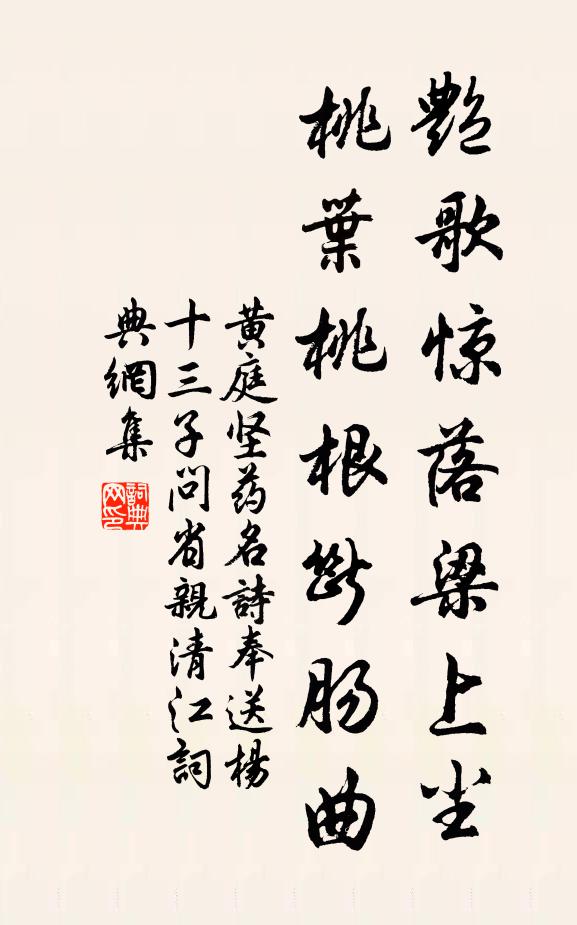 艷歌惊落梁上尘
桃葉桃根斷肠曲
黄庭坚药名詩奉送楊
十三子问省親清江詞
典網集
詞典
网印